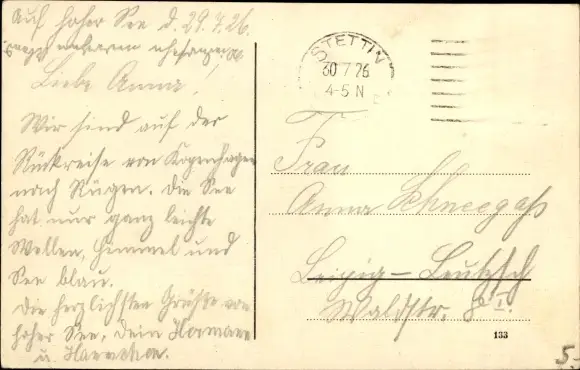 Auf hoher See d. 29.7.26.
Liebe Anna!
Wir sind auf der
Rückreise von Kopenhagen
nach Rügen. Die See
hat nur ganz leichte
Wellen, Himmel und
See blau.
Die herzlichsten Grüße von
hoher See, Dein Hermann
u. 
STETTIN
30 7 26
4-5 N
Frau
Anna Schneegaß
Leipzig-Leutzsch
Waldstr. 8 I.
133
5.-